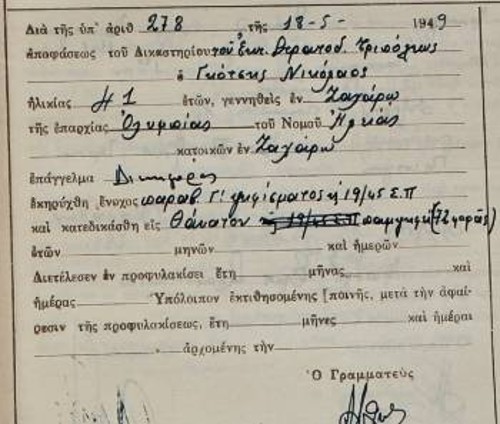 Διὰ τῆς ὑπ' ἀριθ 278 τῆς 18-5- 1949
ἀποφάσεως τοῦ Δικαστηρίου τοῦ Ἐκτ. Στρατοδ. Τριπόλεως
ὁ Γκότσης Νικόλαος
ἡλικίας 41 ἐτῶν, γεννηθεὶς ἐν Ζαχάρω
τῆς ἐπαρχίας Ὀλυμπίας τοῦ Νομοῦ Ἠλείας
κατοικῶν ἐν Ζαχάρω
ἐπάγγελμα Δικηγόρος
ἐκηρύχθη ἔνοχος παραβ. Γ' ψηφίσματος ἢ 19/45 Σ.Π
καὶ κατεδικάσθη εἰς Θάνατον παμψηφεί (72 φοράς)
ἐτῶν μηνῶν καὶ ἡμερῶν
Διετέλεσεν ἐν προφυλακίσει ἔτη μῆνας καὶ
ἡμέρας Ὑπόλοιπον ἐκτιθησομένης [ποινῆς, μετὰ τὴν ἀφαί-
ρεσιν τῆς προφυλακίσεως, ἔτη μῆνες καὶ ἡμέραι
ἀρχομένης τὴν
Ὁ Γραμματεὺς